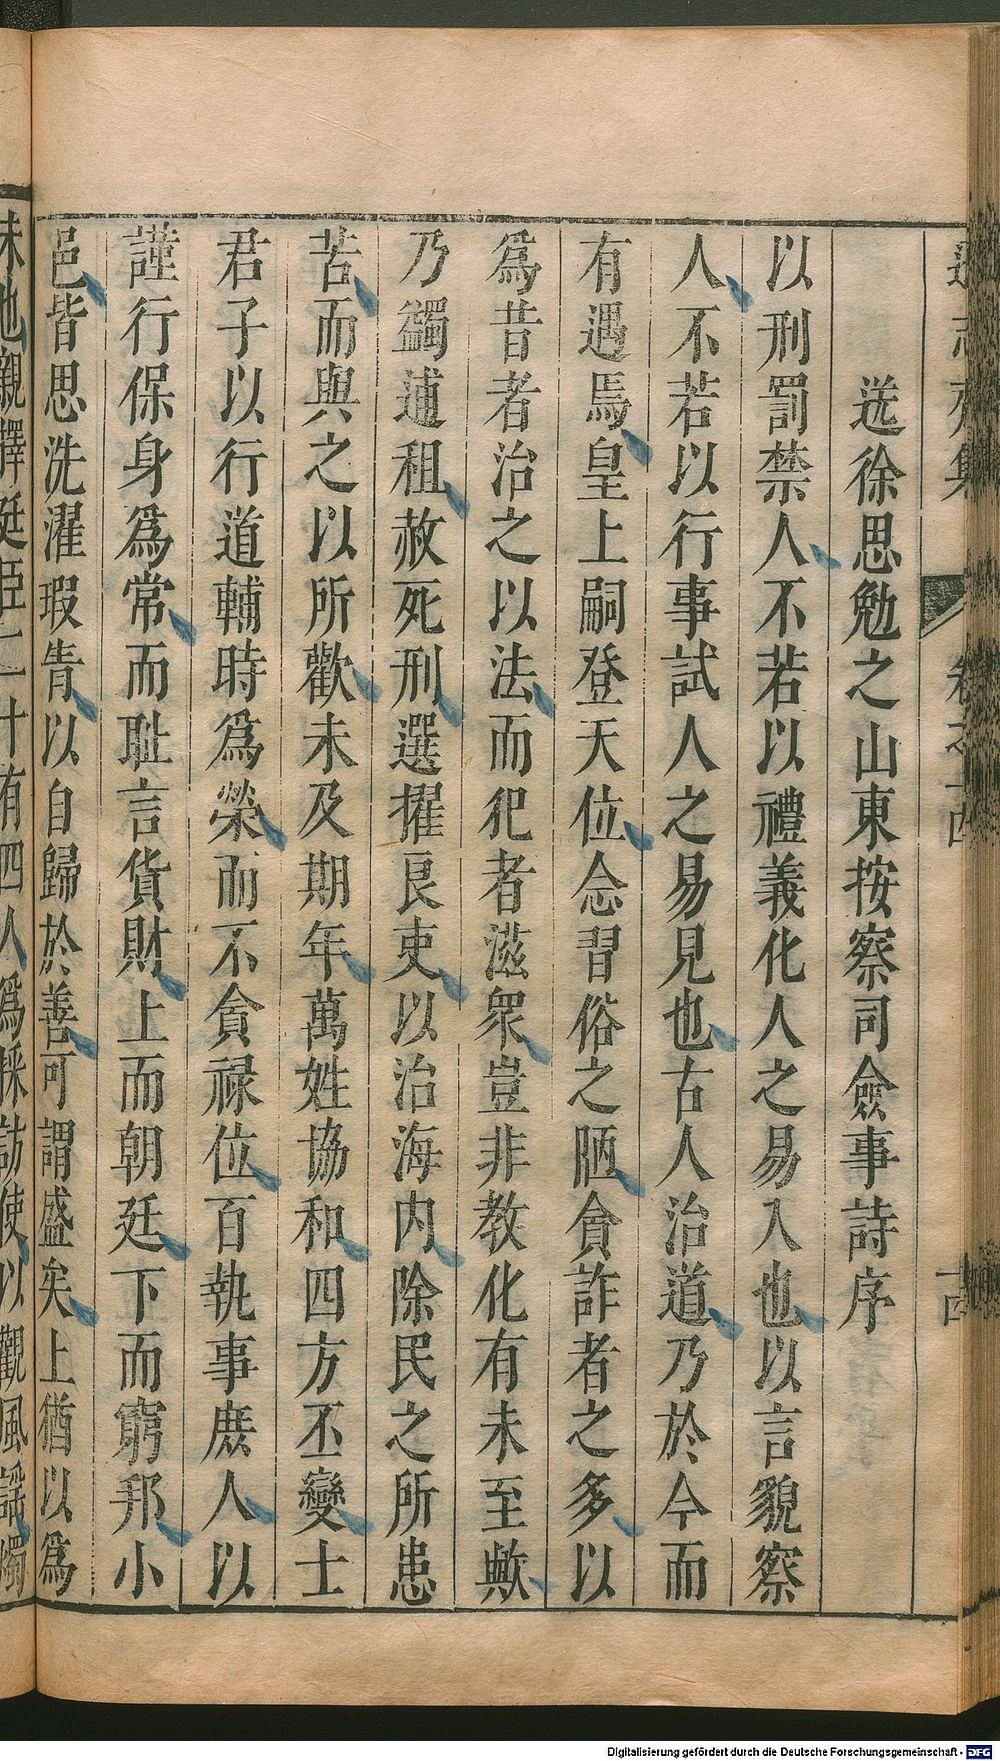 遜志齋集
卷之十四
十四
送徐思勉之山東按察司僉事詩序
以刑罰禁人不若以禮義化人之易入也以言貌察
人不若以行事試人之易見也古人治道乃於今而
有遇焉皇上嗣登天位念習俗之陋貪詐者之多以
爲昔者治之以法而犯者滋衆豈非教化有未至歟
乃蠲逋租赦死刑選擢良吏以治海内除民之所患
苦而與之以所歡未及期年萬姓協和四方丕變士
君子以行道輔時爲榮而不貪禄位百執事庶人以
謹行保身爲常而耻言貨財上而朝廷下而窮邦小
邑皆思洗濯瑕眚以自歸於善可謂盛矣上猶以爲
未也親擇廷臣二十有四人爲採訪使以觀風謡燭
Digitalisierung gefördert durch die Deutsche Forschungsgemeinschaft - DFG